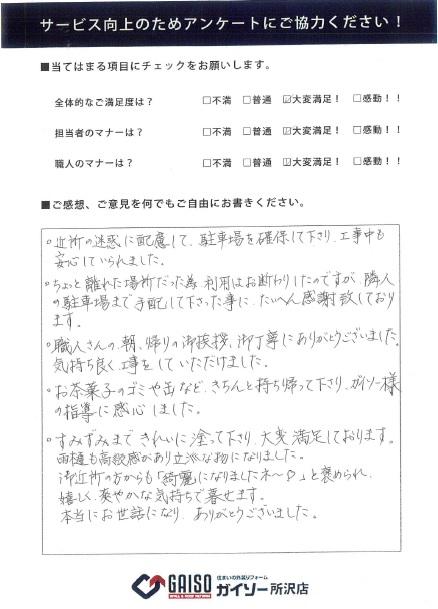 サービス向上のためアンケートにご協力ください！
■当てはまる項目にチェックをお願いします。
全体的なご満足度は？ □不満 □普通 ☑大変満足！ □感動！！
担当者のマナーは？ □不満 □普通 ☑大変満足！ □感動！！
職人のマナーは？ □不満 □普通 ☑大変満足！ □感動！！
■ご感想、ご意見を何でもご自由にお書きください。
○近所の迷惑に配慮して、駐車場を確保して下さり、工事中も
安心していられました。
○ちょっと離れた場所だった為 利用はお断わりしたのですが、隣人
の駐車場まで手配して下さった事に、たいへん感謝致しており
ます。
○職人さんの、朝、帰りの御挨拶、御丁寧にありがとうございました。
気持ち良く工事をしていただけました。
○お茶菓子のゴミや缶など、きちんと持ち帰って下さり、ガイソー様
の指導に感心しました。
○すみずみまできれいに塗って下さり、大変満足しております。
雨樋も高級感があり立派な物になりました。
御近所の方からも「綺麗になりましたネ〜♡」と褒められ、
嬉しく、爽やかな気持ちで暮せます。
本当にお世話になり、ありがとうございました。
GAISO
WALL & ROOF REFORM
住まいの外装リフォーム
ガイソー所沢店